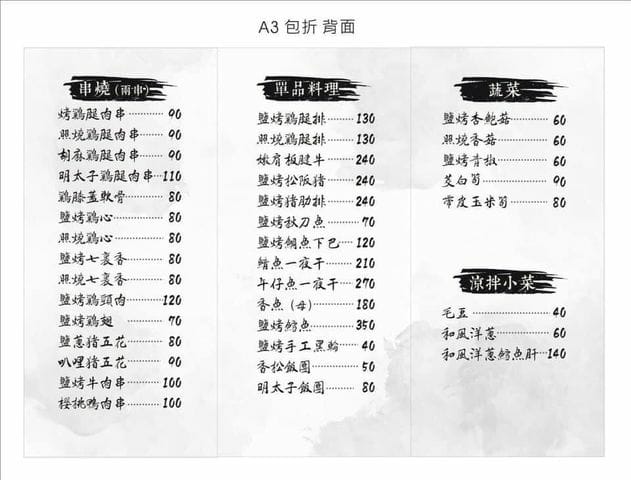 A3 包折 背面
串燒(兩串)
烤鷄腿肉串 90
照燒鷄腿肉串 90
胡麻鷄腿肉串 90
明太子鷄腿肉串 110
鷄膝蓋軟骨 80
鹽烤鷄心 80
照燒鷄心 80
鹽烤七裏香 80
照燒七裏香 80
鹽烤鷄頸肉 120
鹽烤鷄翅 70
鹽蔥豬五花 80
叭哩豬五花 90
鹽烤牛肉串 100
櫻桃鴨肉串 100
單品料理
鹽烤鷄腿排 130
照燒鷄腿排 130
嫩肩板腱牛 240
鹽烤松阪豬 240
鹽烤豬肋排 240
鹽烤秋刀魚 70
鹽烤鯛魚下巴 120
鯖魚一夜干 210
午仔魚一夜干 270
香魚(母) 180
鹽烤鱈魚 350
鹽烤手工黑輪 40
香松飯團 50
明太子飯團 80
蔬菜
鹽烤杏鮑菇 60
照燒香菇 60
鹽烤青椒 60
茭白筍 90
帶皮玉米筍 80
涼拌小菜
毛豆 40
和風洋蔥 60
和風洋蔥鱈魚肝 140